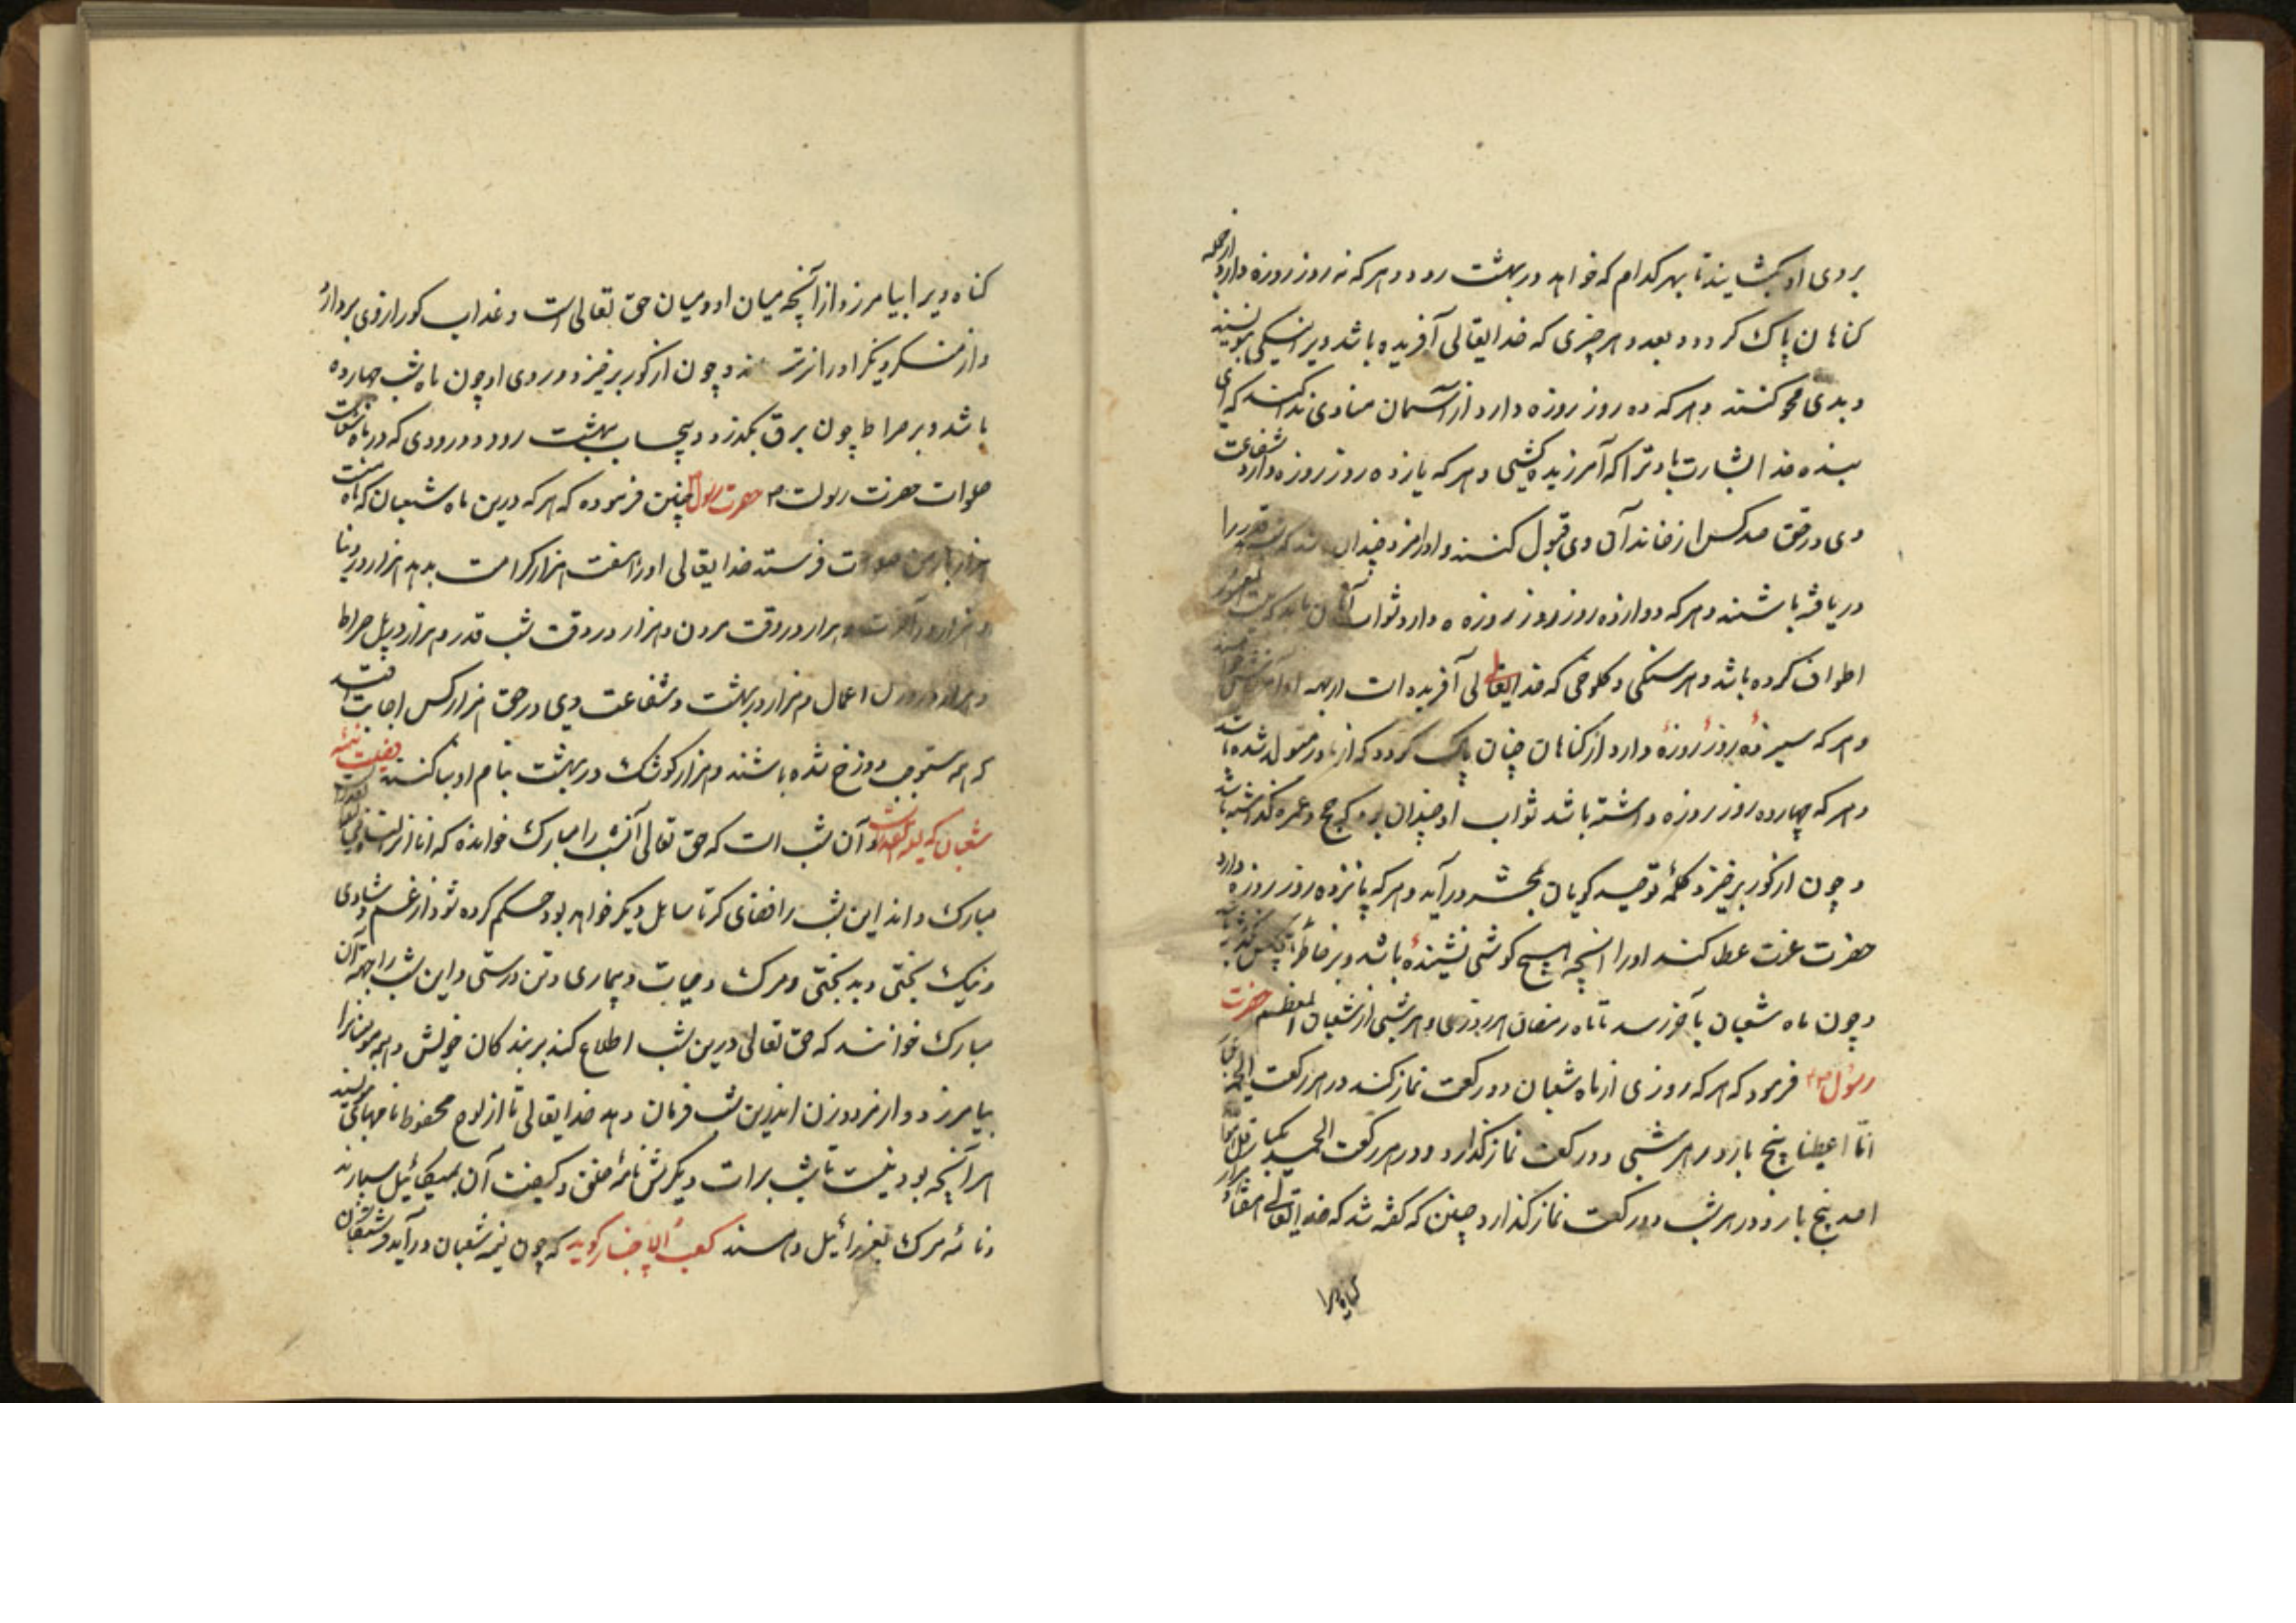 بروی او بکشایند تا بهر کدام که خواهد در بهشت رود و هر که نه روز روزه دارد از جمله
کناهان پاک کردد و بعدد هر چیزی که خدایتعالی آفریده باشد ویرا نیکی بنویسند
و بدی محو کنند و هر که ده روز روزه دارد از آسمان منادی ندا کند که ای
بنده خدا بشارت باد ترا که آمرزیده کشتی و هر که یازده روز روزه دارد شفاعت
وی در حق صد کس از خاندان وی قبول کنند و او را مزد چندان قدر را
دریافته باشند و هر که دوازده روز روزه دارد ثواب آن
طواف کرده باشد و هر سنکی و کلوخی که خدایتعالی آفریده است از بهر او آمرزش
و هر که سیزده روز روزه دارد از کناهان چنان پاک کردد که از مادر متولد شده باشد
و هر که چهارده روز روزه داشته باشد ثواب او چندان بود که حج و عمره کذاشته باشد
و چون از کور برخیزد کلمه توحید کویان بمحشر در آید و هر که پانزده روز روزه دارد
حضرت عزت عطا کند او را آنچه هیچ کوشی نشنیده باشد و بر خاطر
و چون ماه شعبان بآخر رسد تا ماه رمضان هر روزی و هر شبی از شعبان المعظم حضرت
رسول فرمود که هر که روزی از ماه شعبان دو رکعت نماز کند در هر رکعت الحمد
انا اعطینا پنج بار و در هر شبی دو رکعت نماز کذارد و در هر رکعت الحمد یکبار و قل هو الله
احد پنج بار و در هر شب دو رکعت نماز کذارد چنین که کفته شد که خدایتعالی هفتاد هزار
کناه ویرا
کناه ویرا بیامرزد از آنچه میان او و میان حق تعالی است و عذاب کور از وی بردارد
و از منکر و نکیر او را نترسانند و چون از کور برخیزد و روی او چون ماه شب چهارده
باشد و بر صراط چون برق بگذرد و بیحساب ببهشت رود و درودی که در ماه شعبان
صلوات حضرت رسالت حضرت رسول چنین فرموده که هر که درین ماه شعبان که ماه منست
هزار بار بمن صلوات فرستد خدایتعالی او را هفت هزار کرامت بدهد هزار در دنیا
و هزار در آخرت و هزار در وقت مردن و هزار در وقت شب قدر و هزار در پل صراط
و هزار در اعمال و هزار در بهشت و شفاعت وی در حق هزار کس اجابت افتد
که همه مستوجب دوزخ شده باشند و هزار کوشک در بهشت بنام او بنا کنند فضیلت نیمه
شعبان که لیلة القدر است و آن شب است که حق تعالی آنشب را مبارک خوانده که انا انزلناه فی
مبارک و اندر این شب را قضای کرتا سال دیکر خواهد بود حکم کرده شود از غم و شادی
و نیک بختی و بد بختی و مرک و حیات و بیماری و تن درستی و این شب را جهة آن
مبارک خوانند که حق تعالی درین شب اطلاع کند بر بندکان خویش و همه مومنانرا
بیامرزد و از مرد و زن اندرین شب فرمان دهد خدایتعالی تا از لوح محفوظ نامهای نویسند
هر آنچه بودنیست تا شب برات دیکرش نامه خلق و کیفیت آن بمیکائیل سپارند
و نامه مرک بعزرائیل دهند کعب الاخبار کوید که چون نیمه شعبان در آید فرشتکان